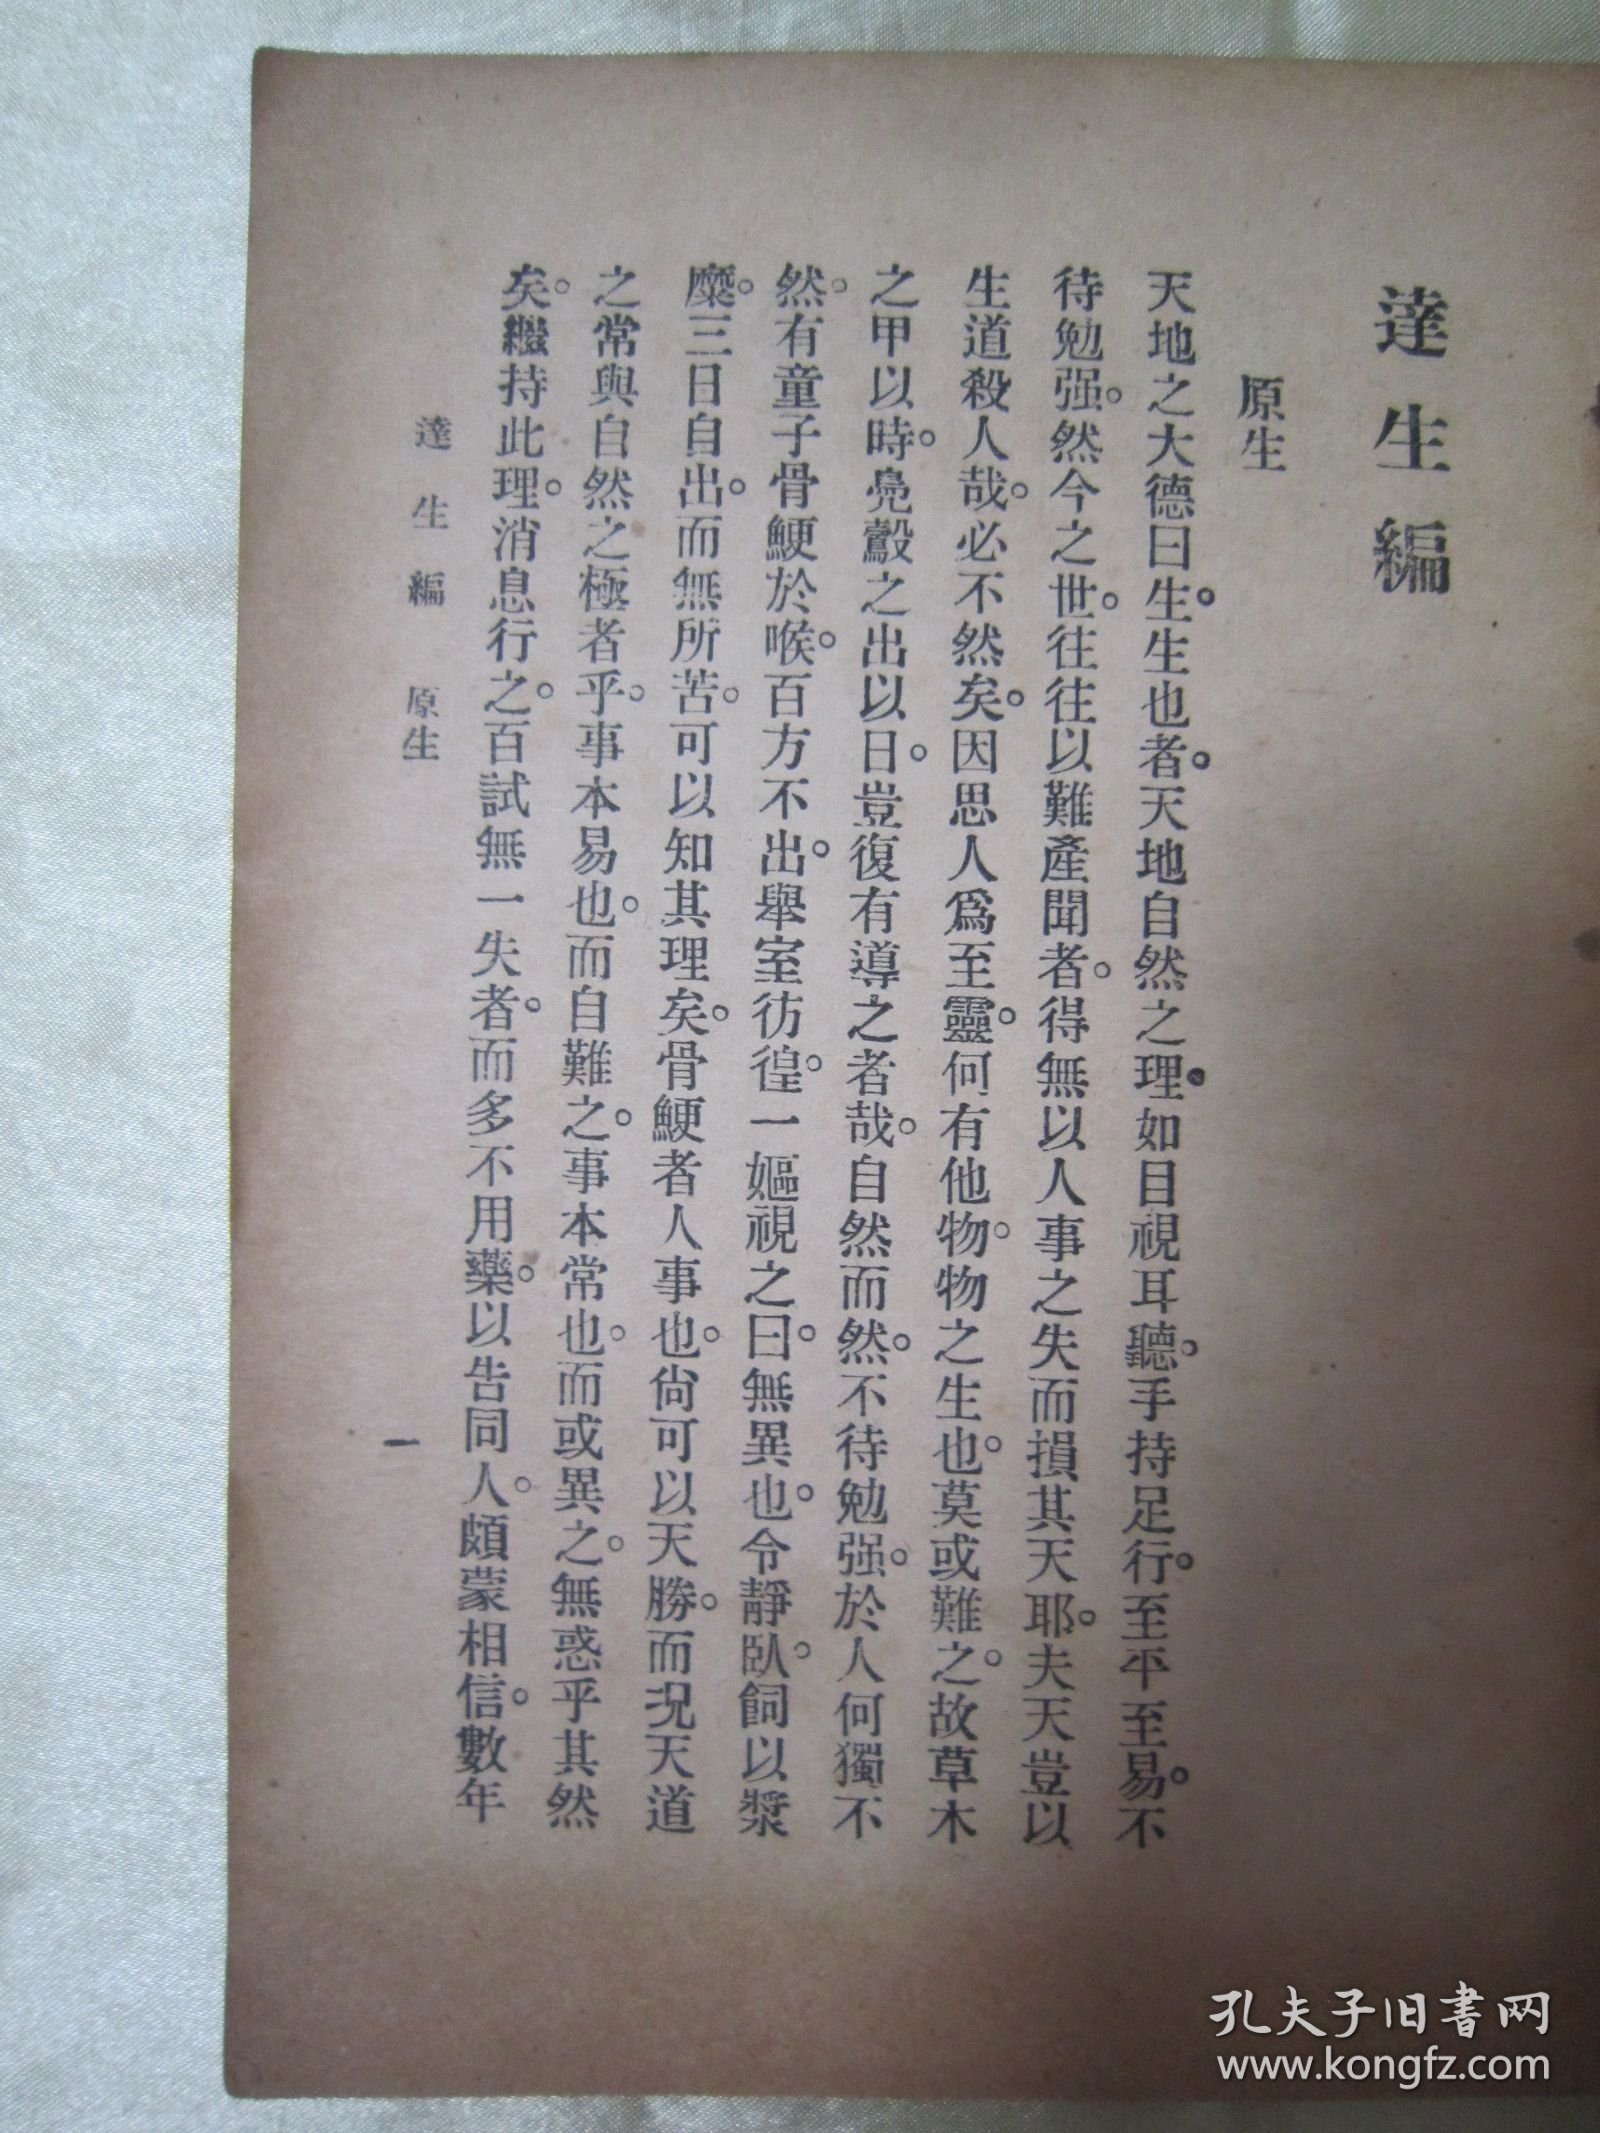 達生編
原生
天地之大德曰生。生生也者。天地自然之理。如目視耳聽。手持足行。至平至易。不
待勉强。然今之世。往往以難產聞者。得無以人事之失而損其天耶。夫天豈以
生道殺人哉。必不然矣。因思人爲至靈。何有他物。物之生也。莫或難之。故草木
之甲以時。鳧鷇之出以日。豈復有導之者哉。自然而然。不待勉强。於人何獨不
然。有童子骨鯁於喉。百方不出。舉室彷徨。一嫗視之曰。無異也。令靜臥。飼以漿
糜。三日自出。而無所苦。可以知其理矣。骨鯁者人事也。尙可以天勝。而况天道
之常與自然之極者乎。事本易也。而自難之。事本常也。而或異之。無惑乎其然
矣。繼持此理。消息行之。百試無一失者。而多不用藥。以告同人。頗蒙相信。數年
達生編 原生
一
孔夫子旧書网
www.kongfz.com